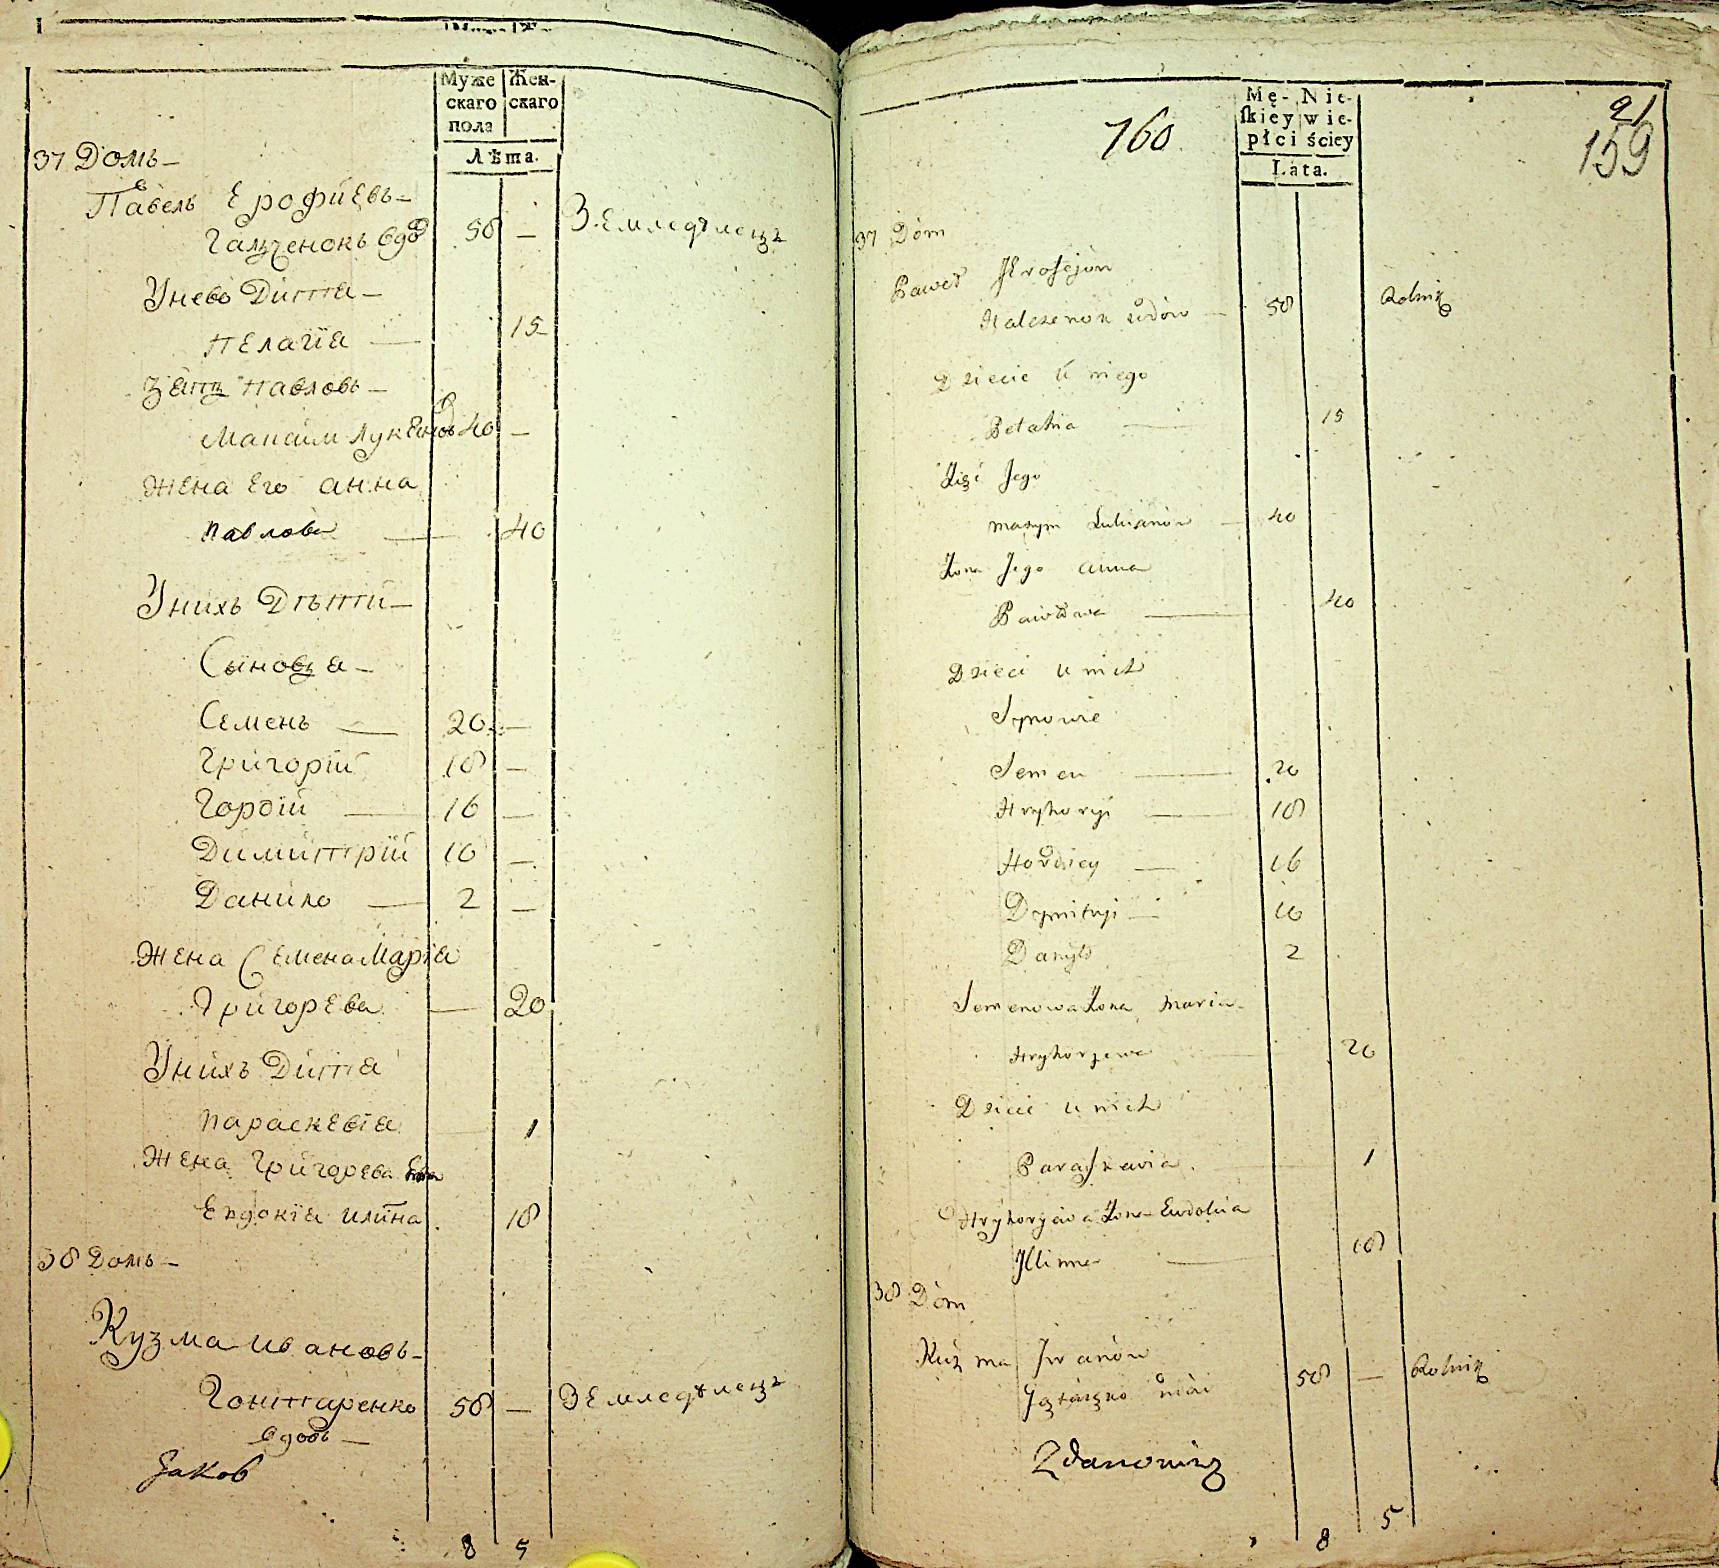 Муже Жен-
скаго скаго
пола
Лѣта.
37 Домъ —
Павель Ерофиевъ —
Галченокъ вдо 58 — Земледѣлецъ
Унево Дитта —
Пелагія — 15
Зять Павловъ —
40 —
Жена Его анна
Павлова — 40
Унихъ Дѣтти —
Сыновя —
Семенъ — 20 —
Григорій 18 —
Гордій — 16 —
Димитрій 10 —
Данило — 2 —
Жена Семена Маріа
Григорева — 20
Унихъ Дитта
Параскевіа 1
Жена Григорева
Евдокіа илина 18
38 Домъ —
Кузма ивановъ —
Гонтаренко 58 — Земледѣлецъ
вдовъ —
Jakob
8 5
760
21
159
Mę- Nie-
ſkiey wie-
płci ściey
Lata.
37 Dóm
Paweł Jerofejów
Halczenok wdów — 58 Rolnik
Dziecie u niego
Pelahia — 15
Zięć Jego
Maxym — 40
Żona Jego anna
Pawłowa — 40
Dzieci u nich
Synowie
Semen — 20
Hryhoryi — 18
Hordiey — 16
Dymitryi — 10
Danyło 2
Semenowa Żona Maria
Hryhorjewa 20
Dziecie u nich
Paraſkewia 1
Hryhoryiowa Żona Eudokia
Illina — 18
38 Dóm
Kuzma Jwanów
58 — Rolnik
Zdanowicz
8 5